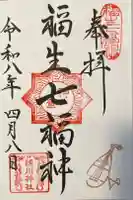 奉拝
福生七福神
令和八年四月八日